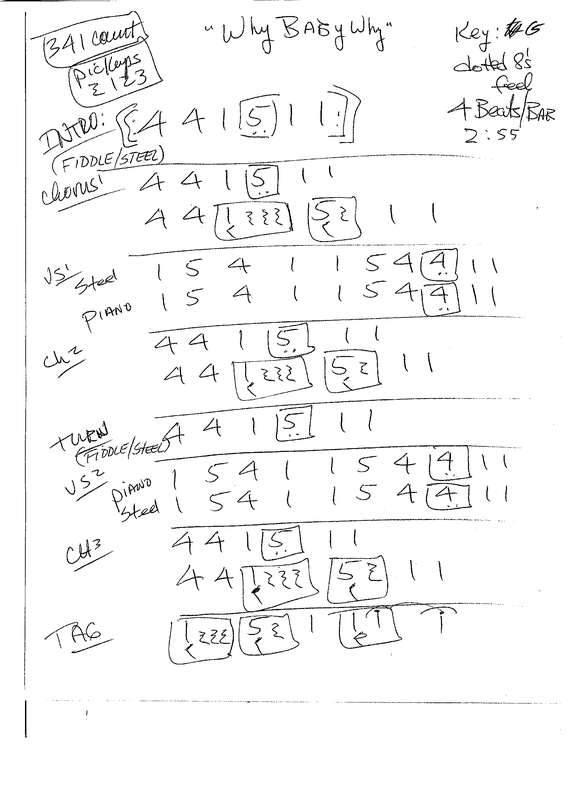 341 count
"Why BABy Why"
Key: G
Pickups
123
dotted 8's
feel
4 Beats/BAR
2:55
INTRO: 4 4 1 5 1 1
(FIDDLE/STEEL)
Chorus 1 4 4 1 5 1 1
4 4 1 5 1 1
VS 1 Steel 1 5 4 1 1 5 4 4 1 1
PIANO 1 5 4 1 1 5 4 4 1 1
Ch 2 4 4 1 5 1 1
4 4 1 5 1 1
TURN 4 4 1 5 1 1
(FIDDLE/STEEL)
VS 2 piano 1 5 4 1 1 5 4 4 1 1
Steel 1 5 4 1 1 5 4 4 1 1
CH 3 4 4 1 5 1 1
4 4 1 5 1 1
TAG 1 5 1 1 1 1